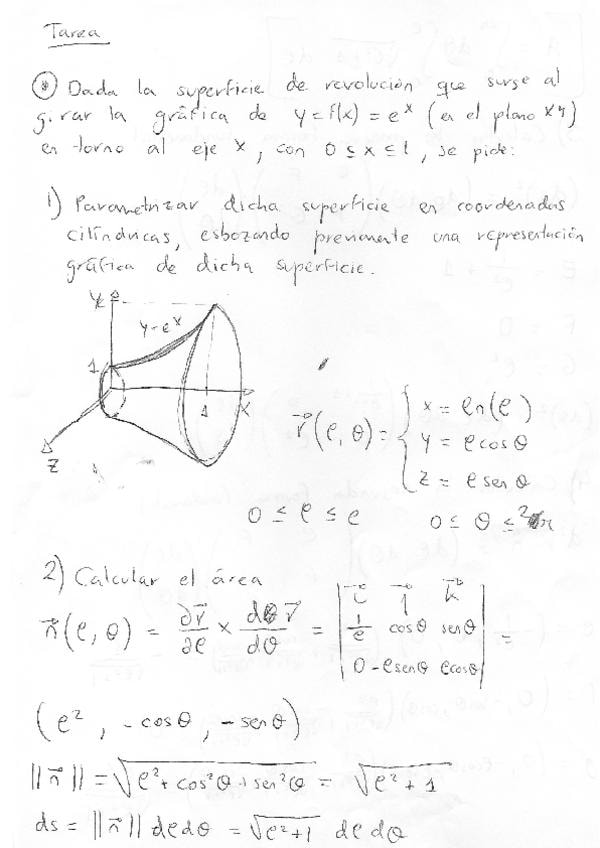 Tarea
* Dada la superficie de revolución que surge al
girar la gráfica de y = f(x) = e^x (en el plano xy)
en torno al eje x, con 0 ≤ x ≤ 1, se pide:
1) Parametrizar dicha superficie en coordenadas
cilíndricas, esbozando previamente una representación
gráfica de dicha superficie.
y
y = e^x
1
1
x
z
r⃗(ρ, θ) = { x = ln(ρ)
y = ρ cos θ
z = ρ sen θ
0 ≤ ρ ≤ e 0 ≤ θ ≤ 2π
2) Calcular el área
n⃗(ρ, θ) = ∂r⃗/∂ρ × dr⃗/dθ = | i⃗ j⃗ k⃗
1/ρ cos θ sen θ
0 -ρ sen θ ρ cos θ | =
(ρ², -cos θ, -sen θ)
||n⃗|| = √(ρ² + cos² θ + sen² θ) = √(ρ² + 1)
ds = ||n⃗|| dρ dθ = √(ρ² + 1) dρ dθ